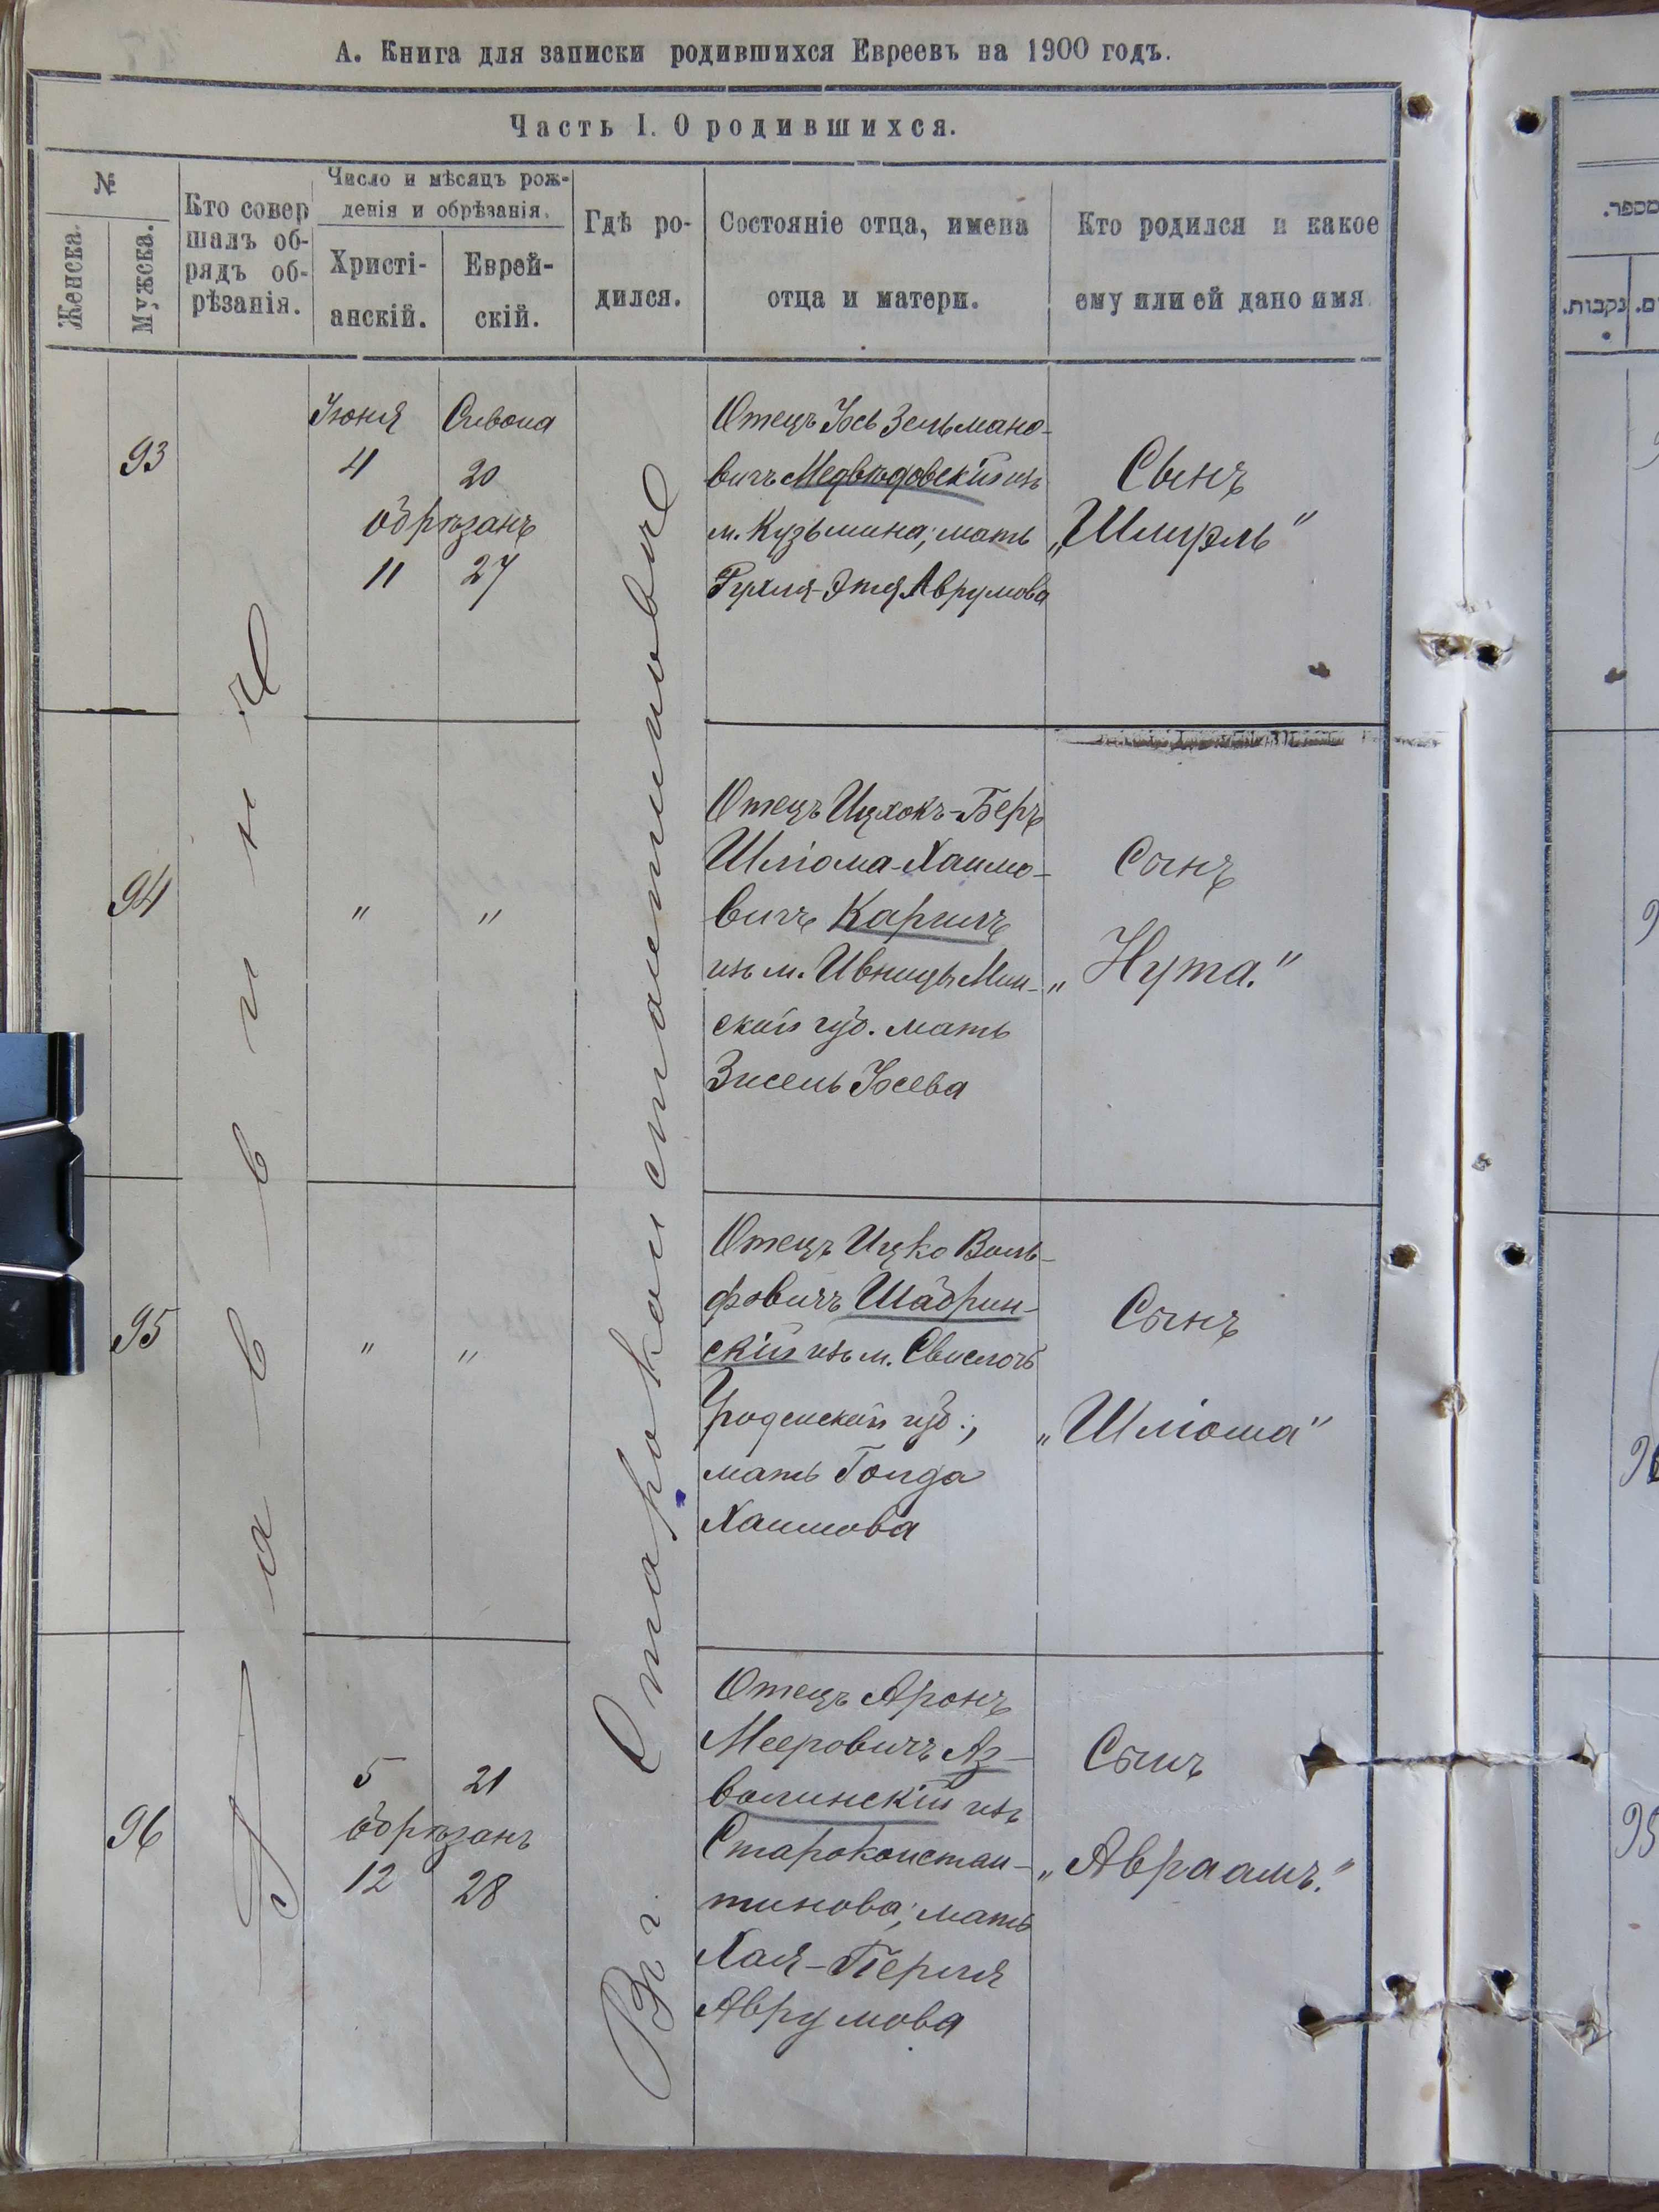 А. Книга для записки родившихся Евреевъ на 1900 годъ.
Часть I. О родившихся.
№
Женска.
Мужска.
Кто совер
шалъ об-
рядъ об-
рѣзанія.
Число и мѣсяцъ рож-
денія и обрѣзанія.
Христі-
анскій.
Еврей-
скій.
Гдѣ ро-
дился.
Состояніе отца, имена
отца и матери.
Кто родился и какое
ему или ей дано имя.
Раввинъ
Въ г. Староконстантиновѣ
93
Іюня
4
обрѣзанъ
11
Сивона
20
27
Отецъ Іось Зельмано-
вичъ Медвѣдовскій изъ
м. Кузьмина; мать
Рухля-Этя Аврумова
Сынъ
„Шмуэль"
94
"
"
Отецъ Ицхокъ-Беръ
Шліома-Хаимо-
вичъ Карпилъ
изъ м. Ивницъ Мин-
ской губ. мать
Зисель Іосева
Сынъ
„Нута."
95
"
"
Отецъ Ицко Воль-
фовичъ Шабрин-
скій изъ м. Свислочь
Гродненской губ.;
мать Голда
Хаимова
Сынъ
„Шліома"
96
5
обрѣзанъ
12
21
28
Отецъ Аронъ
Мееровичъ Аз-
волинскій изъ
Староконстан-
тинова; мать
Хая-Перля
Аврумова
Сынъ
„Авраамъ."
מספר.
נקבות.
95